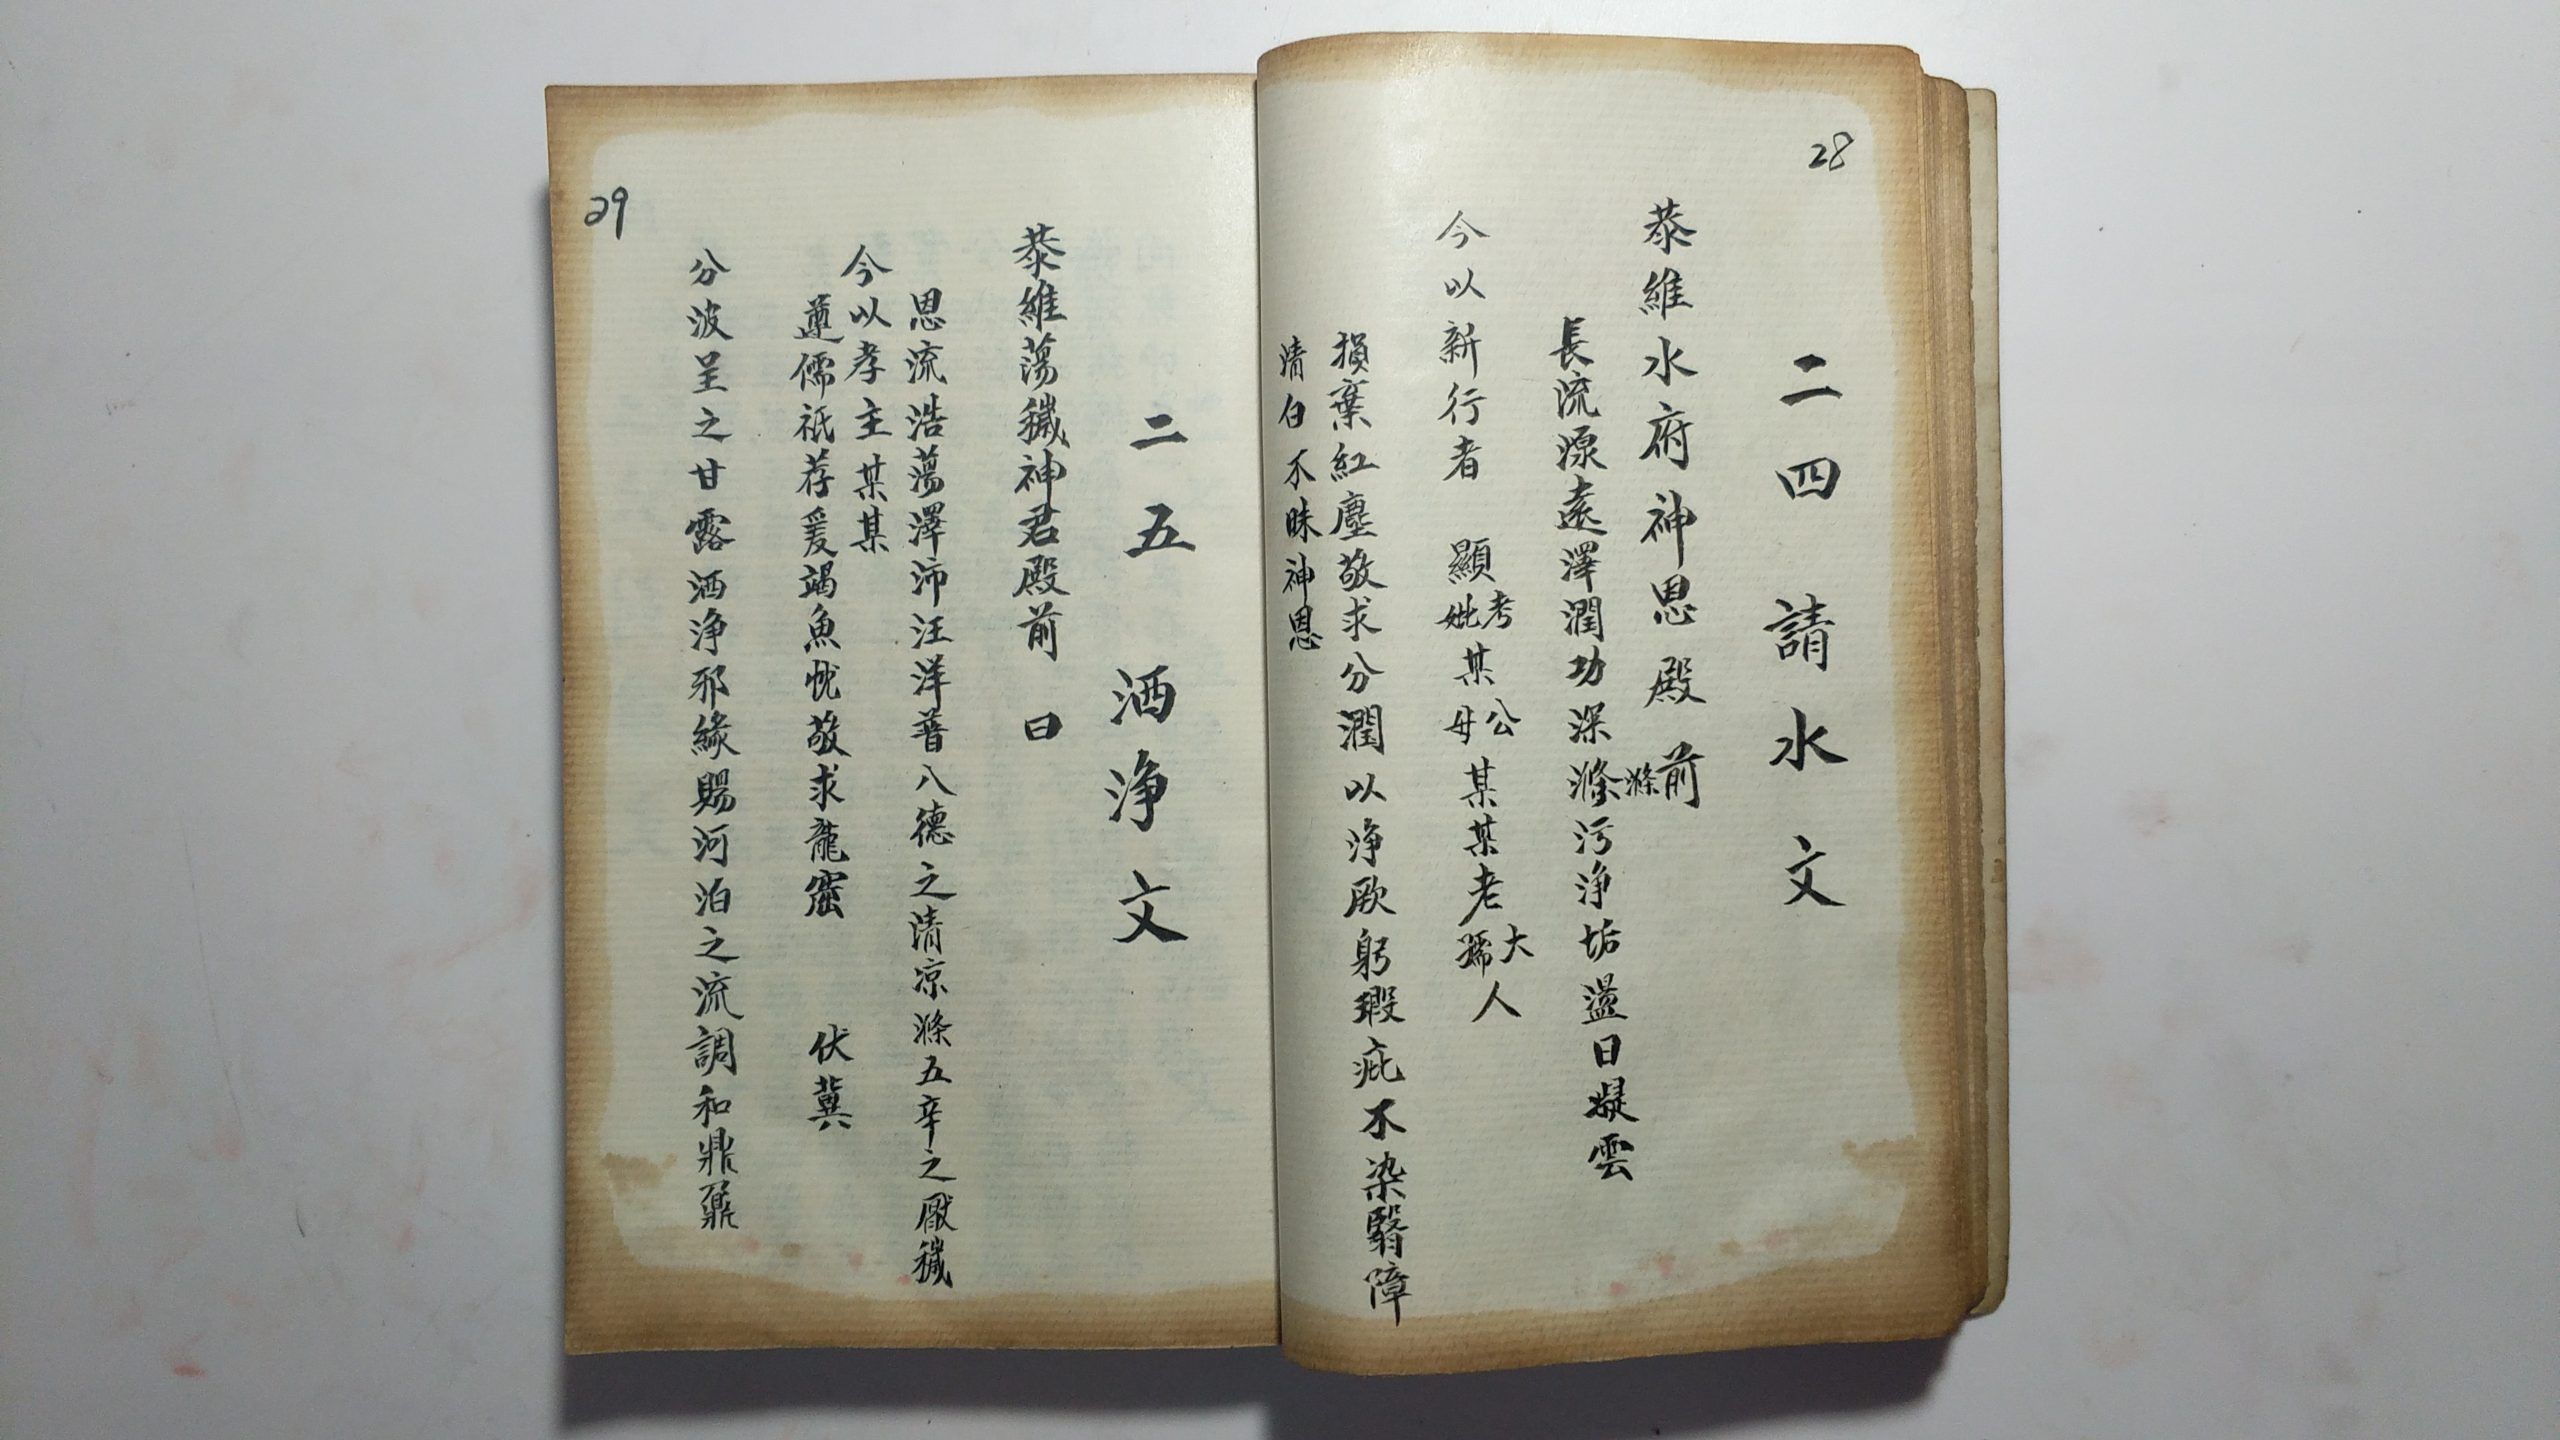 28
二四 請水文
恭維水府神恩殿前
長流源遠澤潤功深滌滌污净垢盪日凝雲
今以新行者 顯考妣某公母某某老大孺人
損棄紅塵敬求分潤以净厥躬瑕疵不染翳障
清白不昧神恩
二五 洒净文
恭維蕩穢神君殿前 曰
恩流浩蕩澤沛汪洋普八德之清凉滌五辛之厭穢
今以孝主某某
遵儒祇荐爰竭魚忱敬求龍窟 伏冀
分波呈之甘露洒净邪緣賜河泊之流調和鼎鼐
29